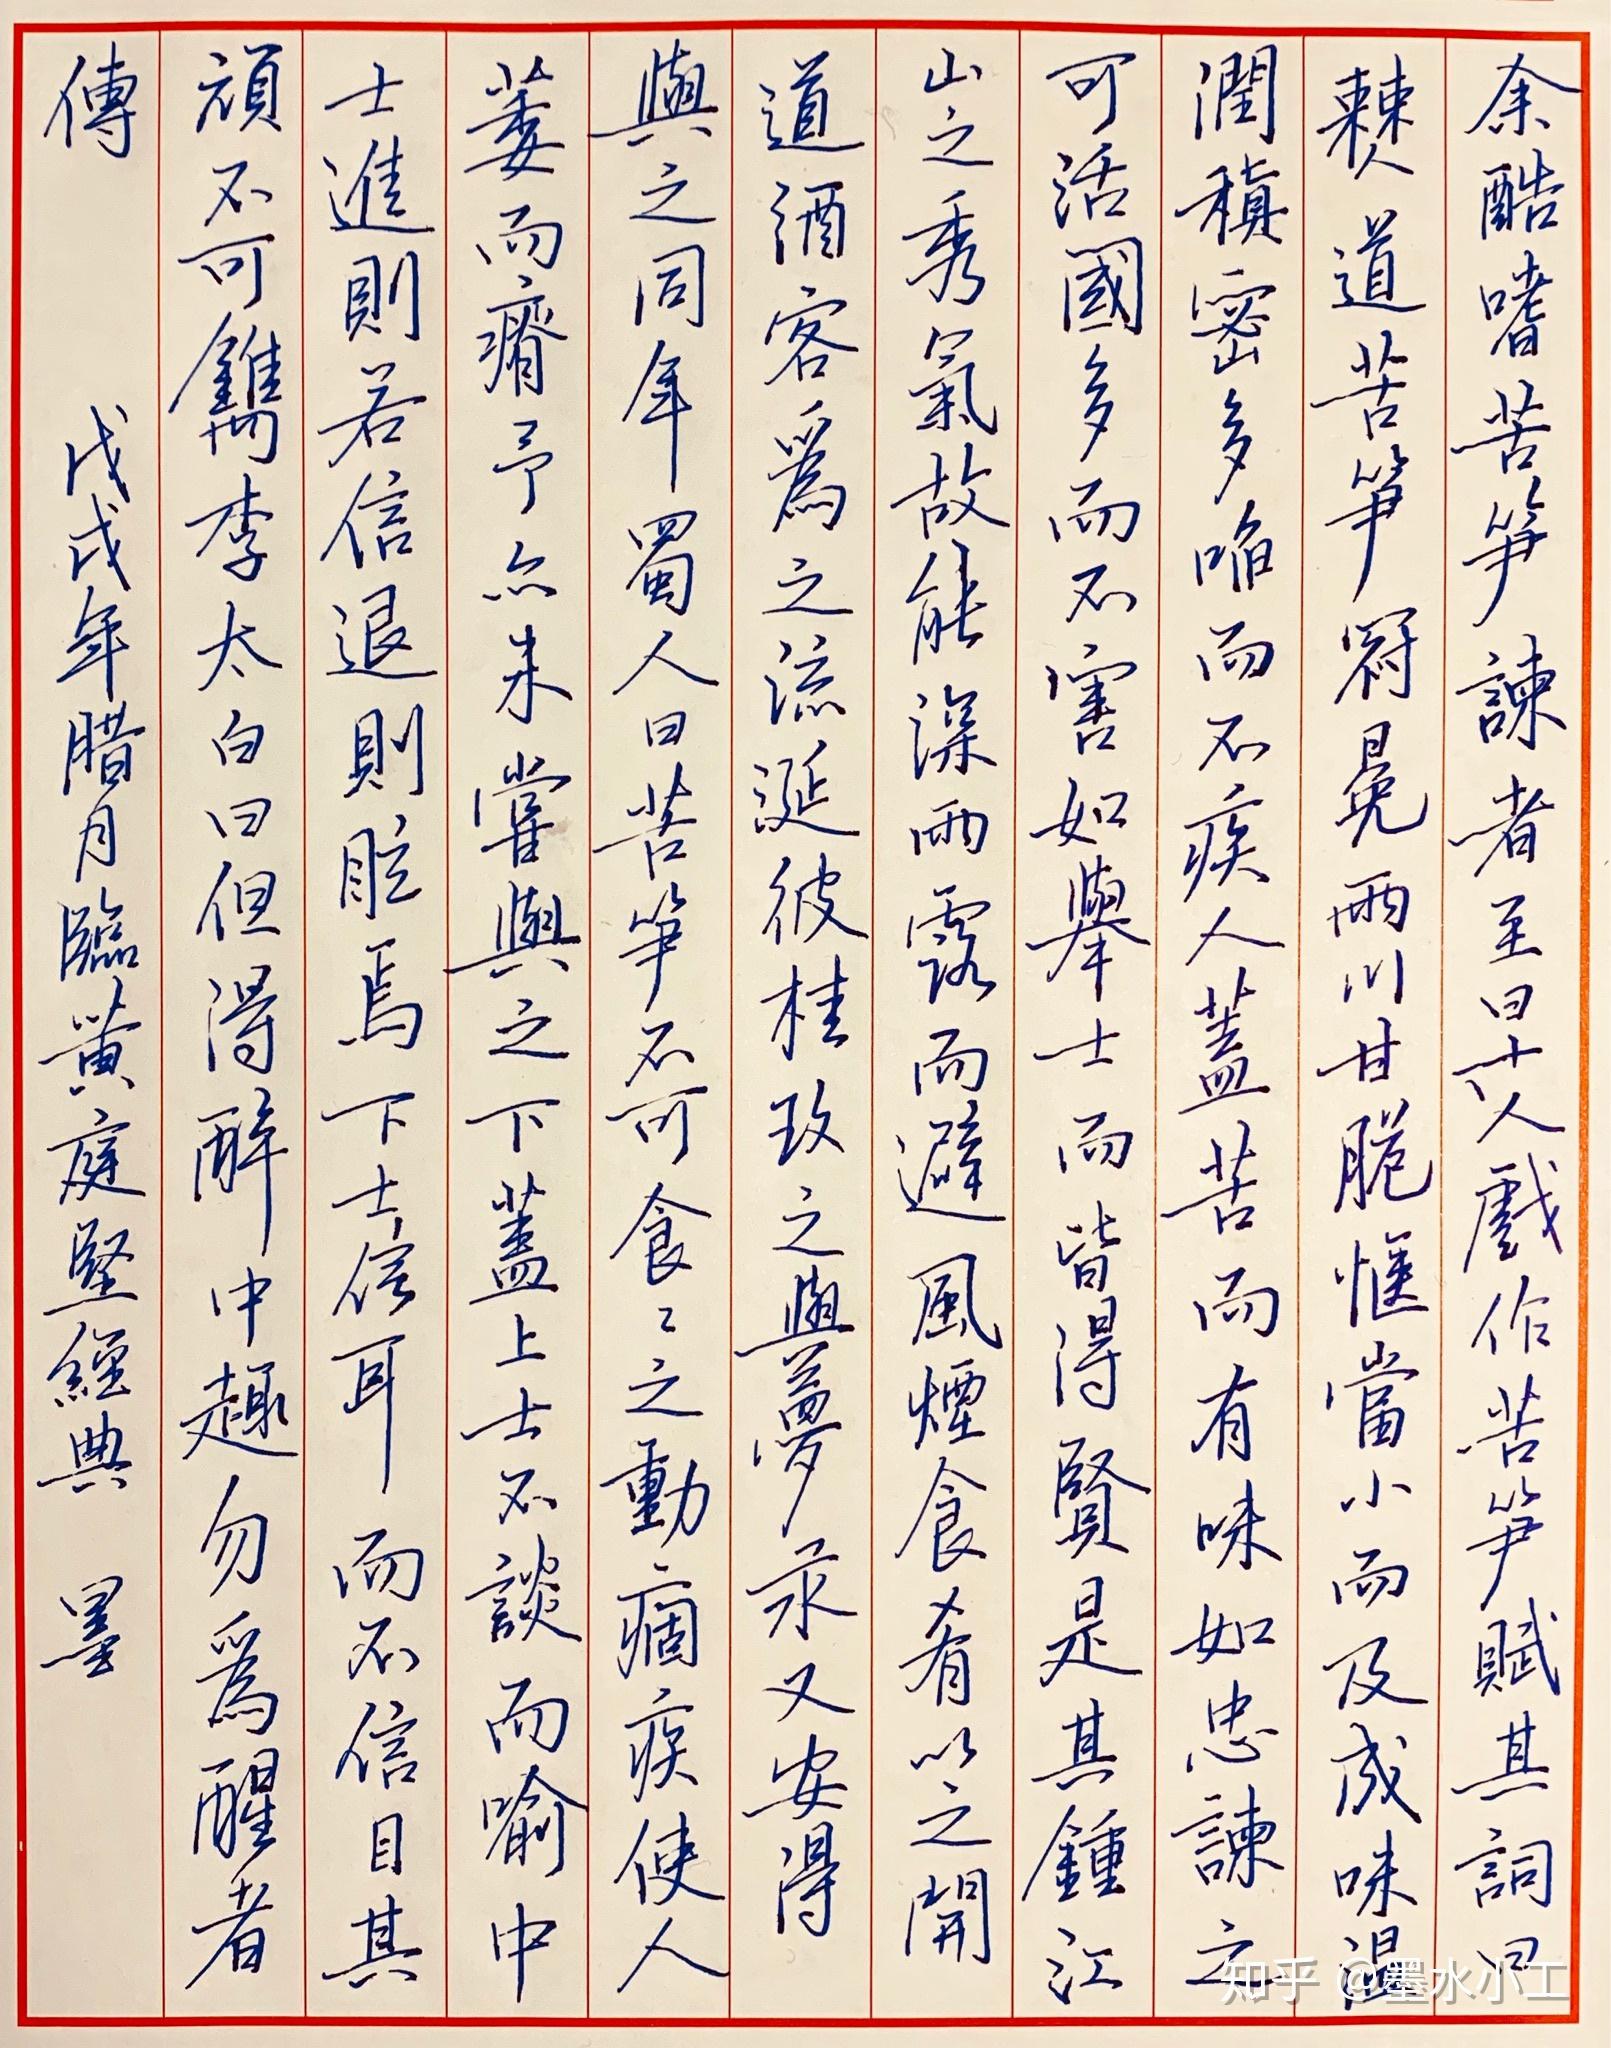 余酷嗜苦笋諫者至曰十人戲作苦笋賦其詞曰
僰道苦笋冠冕兩川甘脆愜當小而及成味温
潤稹密多啗而不疾人蓋苦而有味如忠諫之
可活國多而不害如舉士而皆得賢是其鍾江
山之秀氣故能深雨露而避風煙食肴以之開
道酒客為之流涎彼桂玫之與夢汞又安得
與之同年蜀人曰苦笋不可食〻之動痼疾使人
萎而瘠予亦未嘗與之下蓋上士不談而喻中
士進則若信退則眩焉下士信耳而不信目其
頑不可鐫李太白曰但得醉中趣勿為醒者
傳 戊戌年腊月臨黄庭堅經典 墨
知乎 @墨水小工